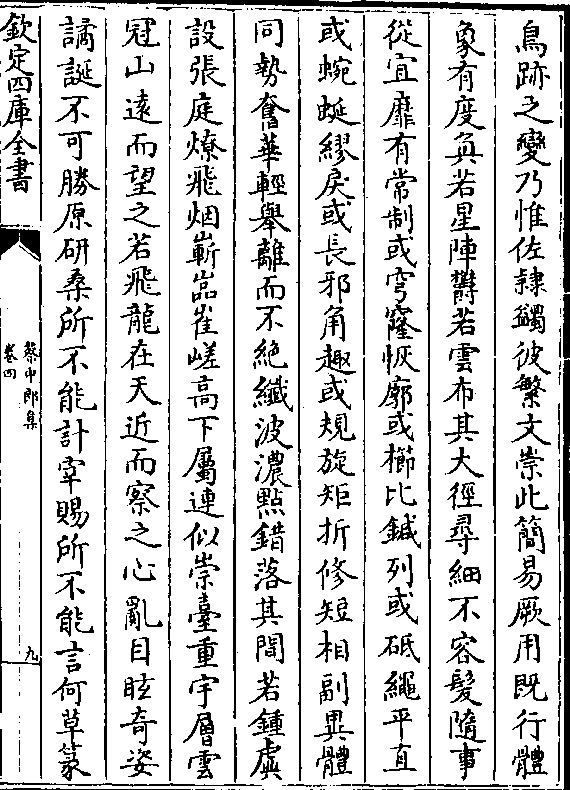 鳥跡之變乃惟佐隷蠲彼繁文崇此簡易厥用既行體
象有度奐若星陣欝若雲布其大徑尋細不容髮隨事
從宜靡有常制或穹窿恢廓或櫛比鍼列或砥繩平直
或蜿蜒繆戾或長邪角趣或規旋矩折修短相副異體
同勢奮華輕舉離而不絶纎波濃點錯落其間若鍾虡
設張庭燎飛烟嶄嵓崔嵯高下屬連似崇臺重宇層雲
冠山遠而望之若飛龍在天近而察之心亂目眩奇姿
譎誕不可勝原研桑所不能計宰賜所不能言何草篆
欽定四庫全書
蔡中郎集
卷四
九